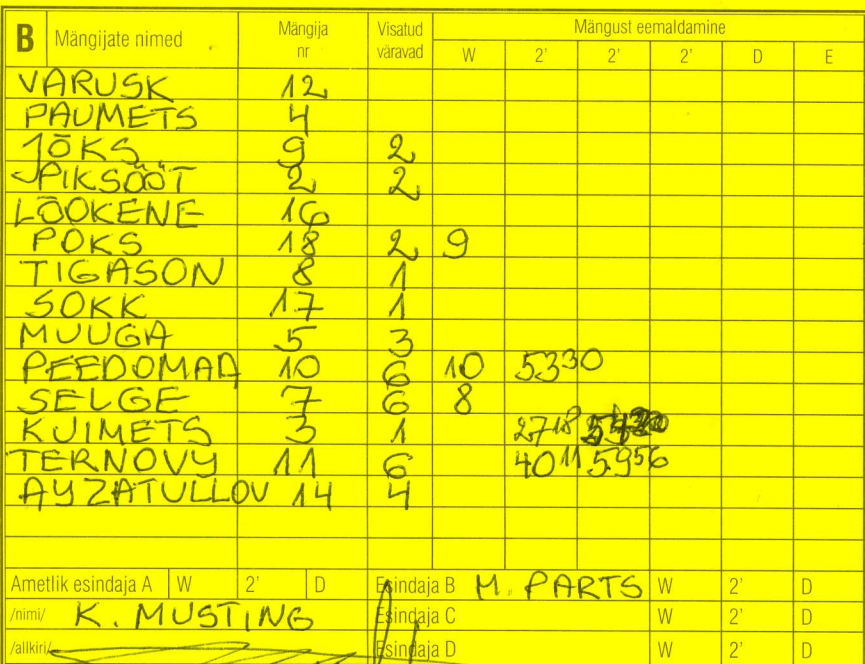 B Mängijate nimed Mängija nr Visatud väravad Mängust eemaldamine
W 2' 2' 2' D E
VARUSK 12
PAUMETS 4
JÕKS 9 2
PIKSÖÖT 2 2
LÕOKENE 16
POKS 18 2 9
TIGASON 8 1
SOKK 17 1
MUUGA 5 3
PEEDOMAA 10 6 10 5330
SELGE 7 6 8
KUIMETS 3 1 2718
TERNOVY 11 6 4011 5956
AYZATULLOV 14 4
Ametlik esindaja A W 2' D Esindaja B M. PARTS W 2' D
/nimi/ K. MUSTING Esindaja C W 2' D
/allkiri/ Esindaja D W 2' D